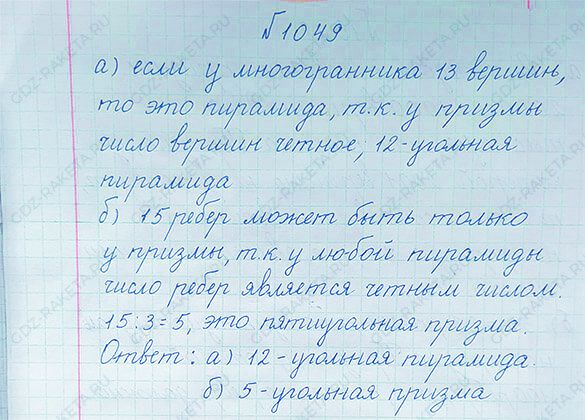 №1049
а) если у многогранника 13 вершин,
то это пирамида, т.к. у призмы
число вершин четное; 12-угольная
пирамида
б) 15 ребер может быть только
у призмы, т.к. у любой пирамиды
число ребер является четным числом.
15:3=5, это пятиугольная призма.
Ответ: а) 12-угольная пирамида.
б) 5-угольная призма